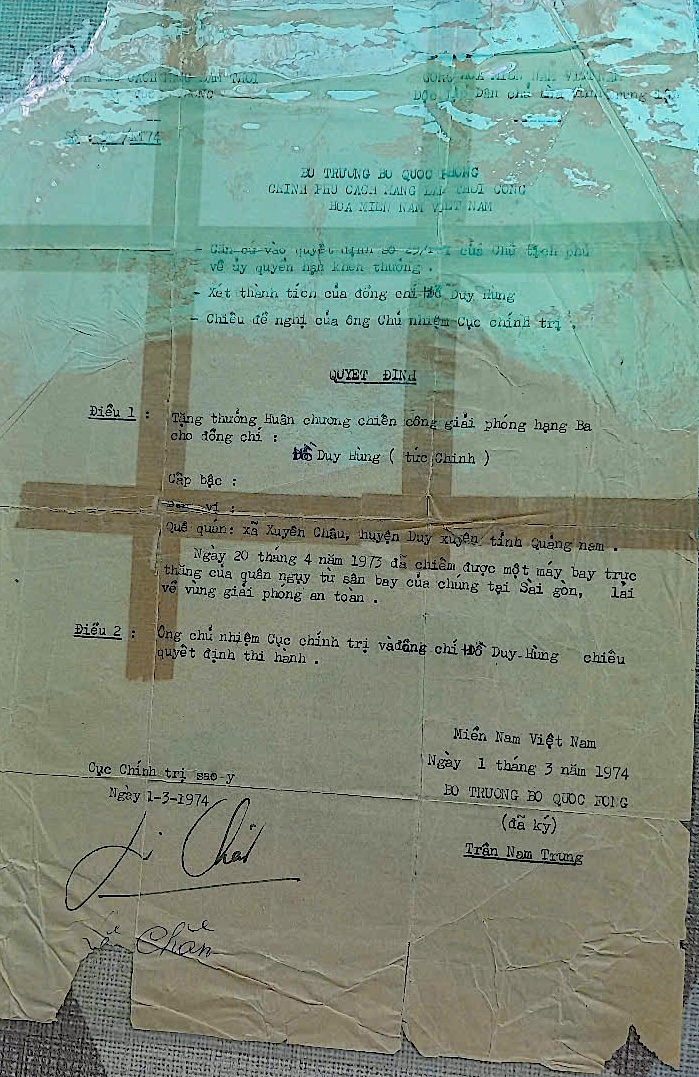 PHỦ CÁCH MẠNG LÂM THỜI
CỘNG HÒA MIỀN NAM VIỆT NAM
Độc lập Dân chủ
/KT74
BO TRUONG BO QUOC PHONG
CHINH PHU CACH MANG LAM THOI CONG
HOA MIEN NAM VIET NAM
- Căn cứ vào quyết định số của Chủ tịch phủ
về ủy quyền hạn khen thưởng .
- Xét thành tích của đồng chí Hồ Duy Hùng
- Chiếu đề nghị của ông Chủ nhiệm Cục chính trị .
QUYET ĐINH
Điều 1 : Tặng thưởng Huân chương chiến công giải phóng hạng Ba
cho đồng chí :
Hồ Duy Hùng ( tức Chinh )
Cấp bậc :
Đơn vị :
Quê quán: xã Xuyên Châu, huyện Duy xuyên tỉnh Quảng nam .
Ngày 20 tháng 4 năm 1973 đã chiếm được một máy bay trực
thăng của quân ngụy từ sân bay của chúng tại Sài gòn, lái
về vùng giải phóng an toàn .
Điều 2 : Ông chủ nhiệm Cục chính trị và đồng chí Hồ Duy Hùng chiếu
quyết định thi hành .
Miền Nam Việt Nam
Ngày 1 tháng 3 năm 1974
BO TRUONG BO QUOC FONG
(đã ký)
Trần Nam Trung
Cục Chính trị sao y
Ngày 1-3-1974
Chân